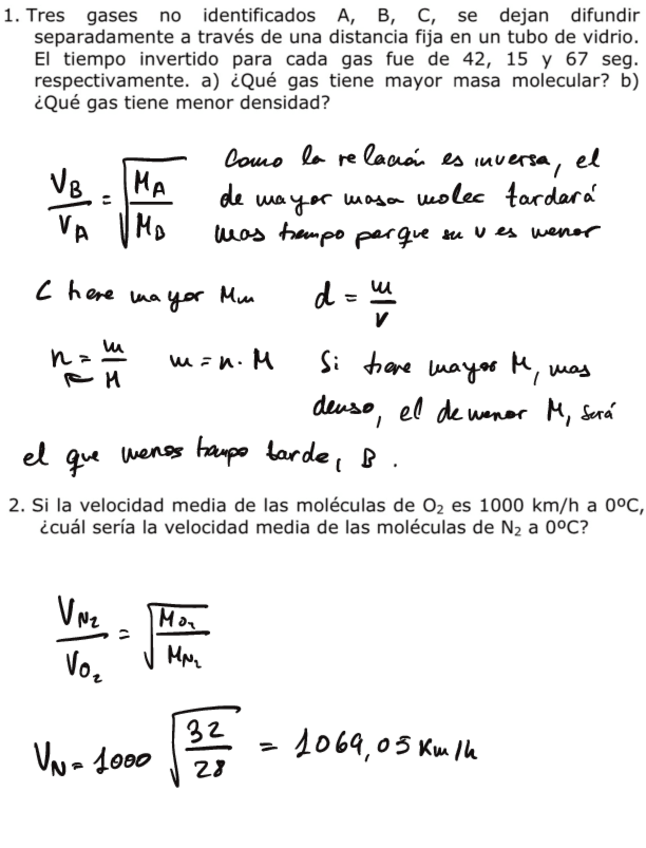 1. Tres gases no identificados A, B, C, se dejan difundir
separadamente a través de una distancia fija en un tubo de vidrio.
El tiempo invertido para cada gas fue de 42, 15 y 67 seg.
respectivamente. a) ¿Qué gas tiene mayor masa molecular? b)
¿Qué gas tiene menor densidad?
V_B / V_A = √(M_A / M_B)
Como la relación es inversa, el
de mayor masa molec tardará
mas tiempo porque su v es menor
C tiene mayor Mm d = m/V
n = m/M m = n · M Si tiene mayor M, mas
denso, el de menor M, será
el que menos tiempo tarde, B.
2. Si la velocidad media de las moléculas de O₂ es 1000 km/h a 0ºC,
¿cuál sería la velocidad media de las moléculas de N₂ a 0ºC?
V_N₂ / V_O₂ = √(M_O₂ / M_N₂)
V_N = 1000 √(32/28) = 1069,05 Km/h